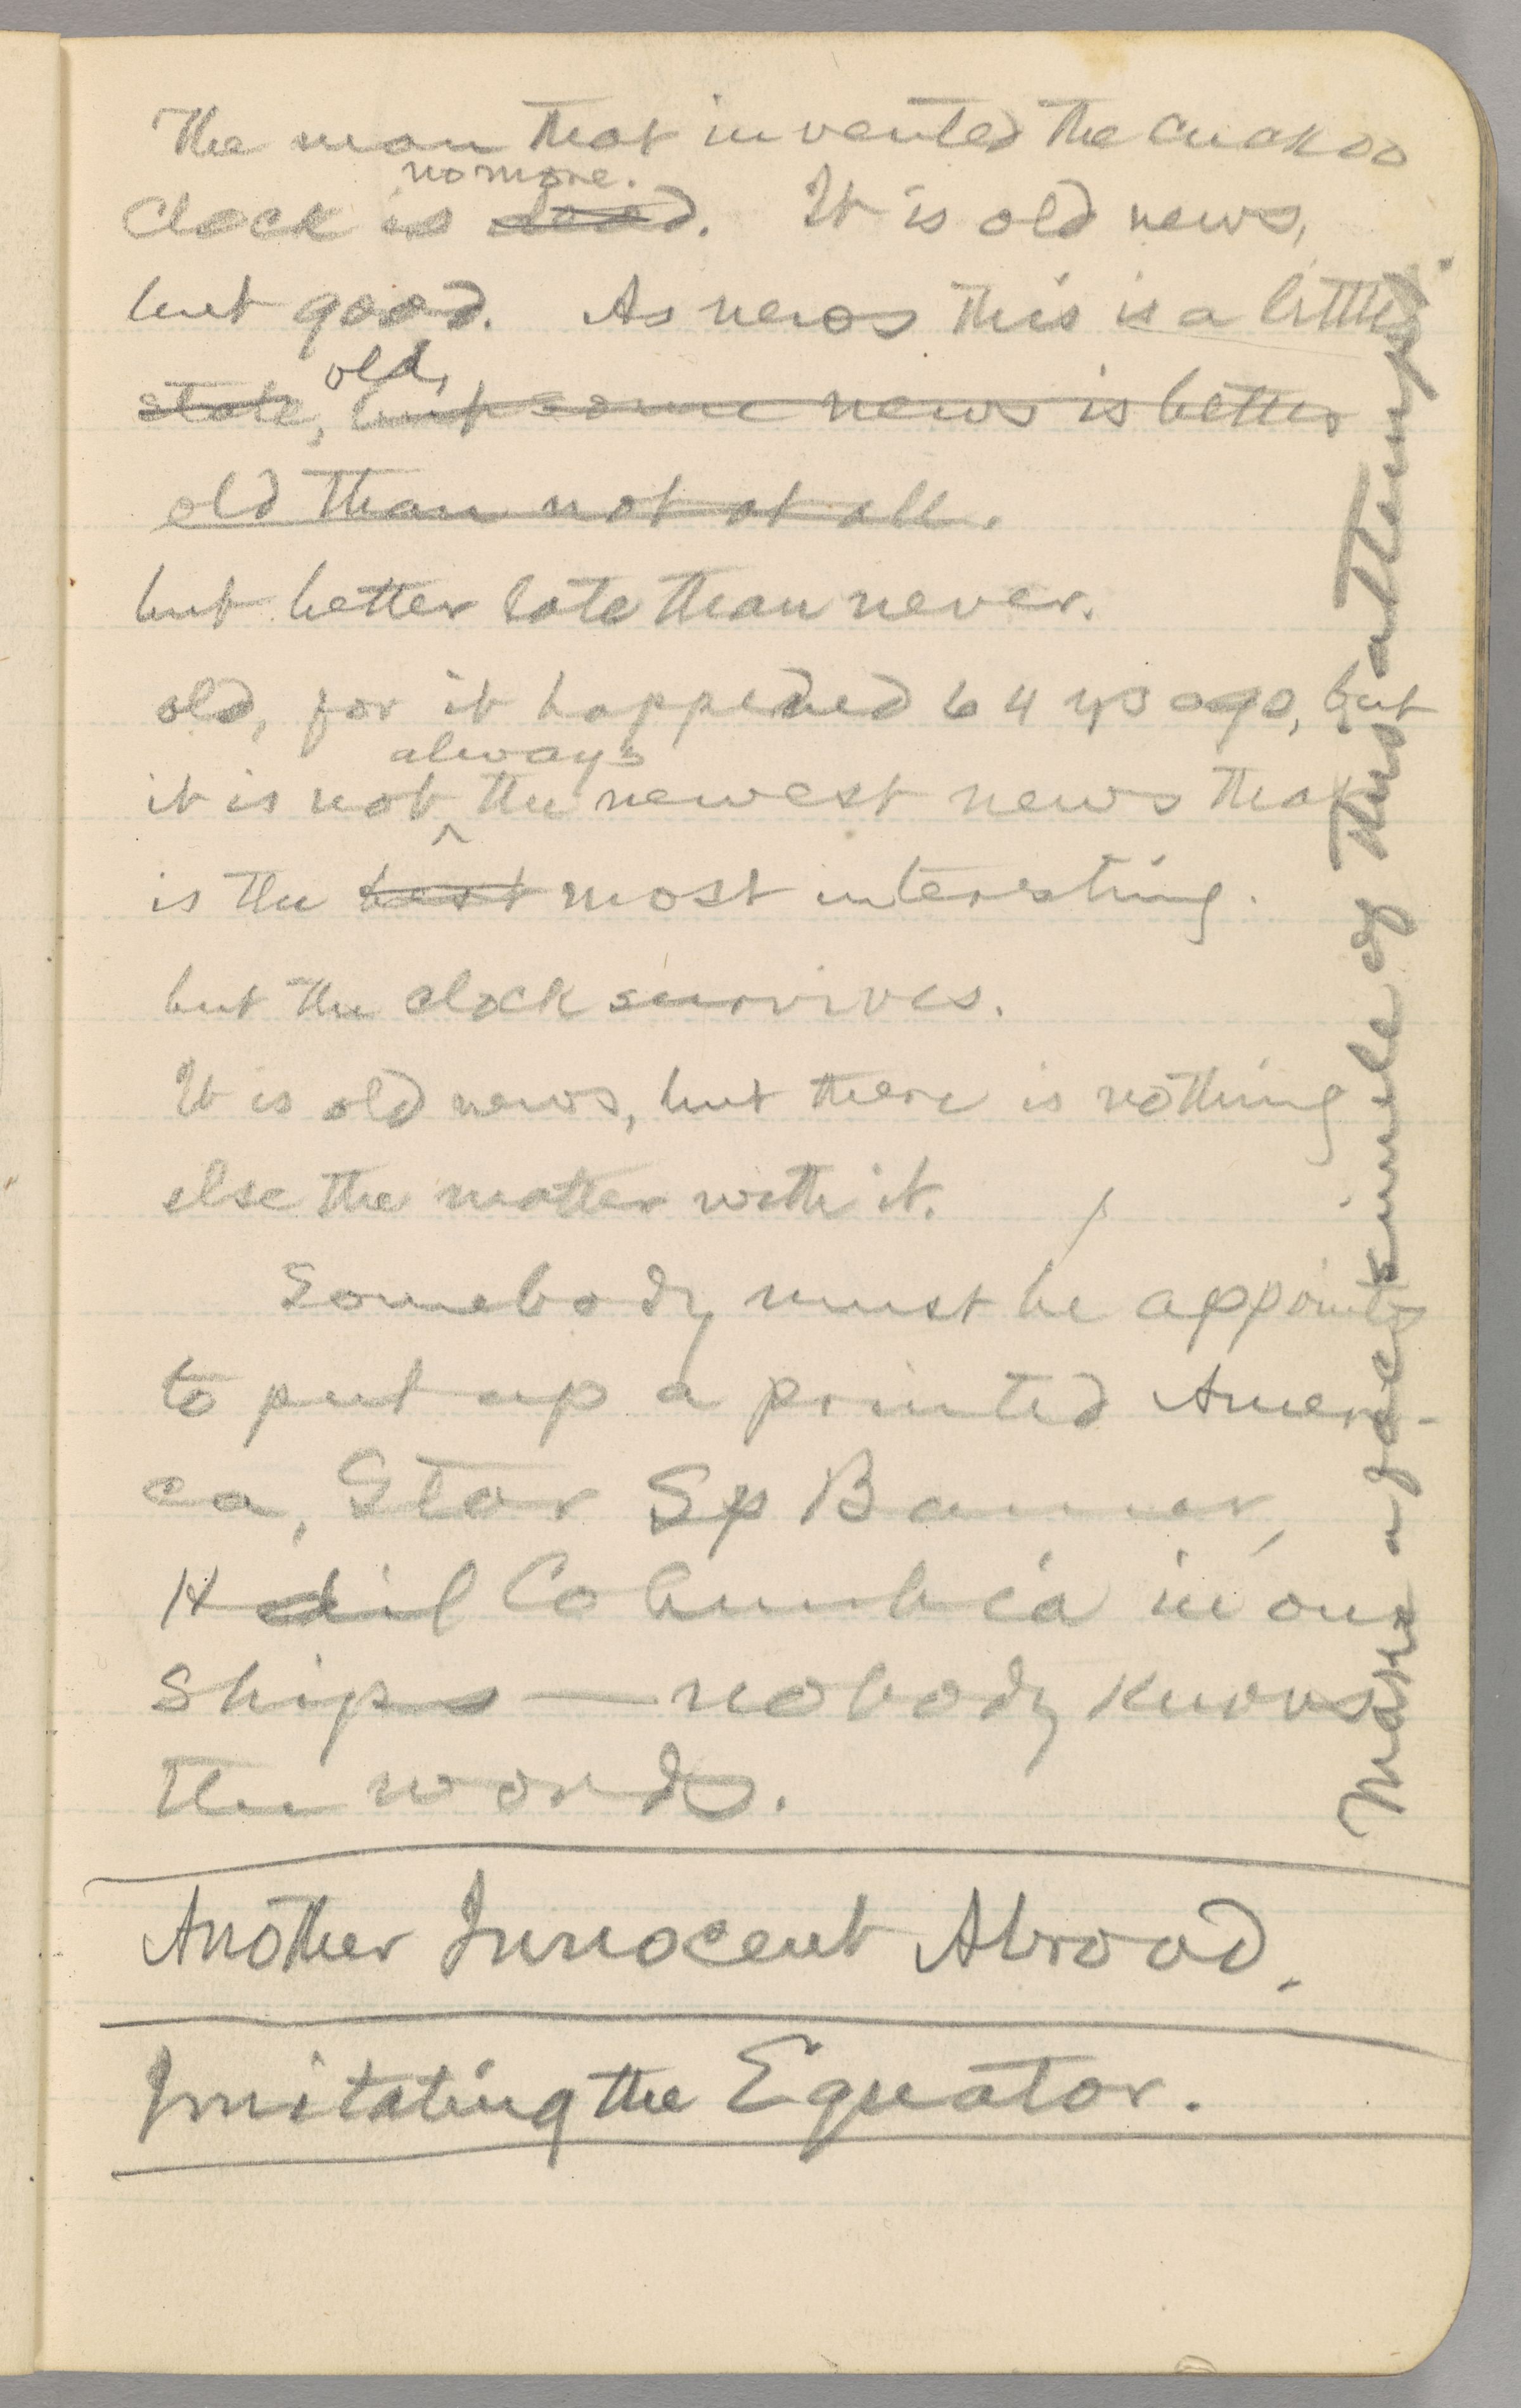 The man that invented the cuckoo
no more.
clock is dead. It is old news,
but good. As news this is a little
old,
stale, but some news is better
old than not at all.
but better late than never.
old, for it happened 64 ys ago, but
always
it is not ^ the newest news that
is the best most interesting.
but the clock survives.
It is old news, but there is nothing
else the matter with it.
Somebody must be appointed
to put up a printed Ameri-
ca, Star Sp Banner,
Hail Columbia in our
ships — nobody knows
the words.
Another Innocent Abroad.
Imitating the Equator.
Make a facsimile of this attempt.